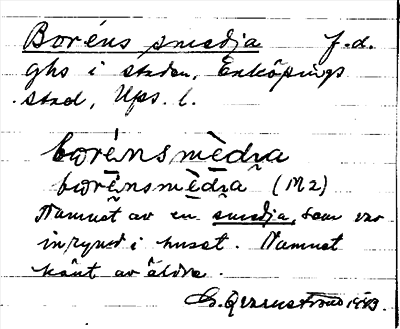 Boréns smedja f.d.
ghs i staden, Enköpings
stad, Ups. l.
borénsmèdıa
borēnsmēdıa (M2)
Namnet av en smedja, som var
inrymd i huset. Namnet
känt av äldre.
1883